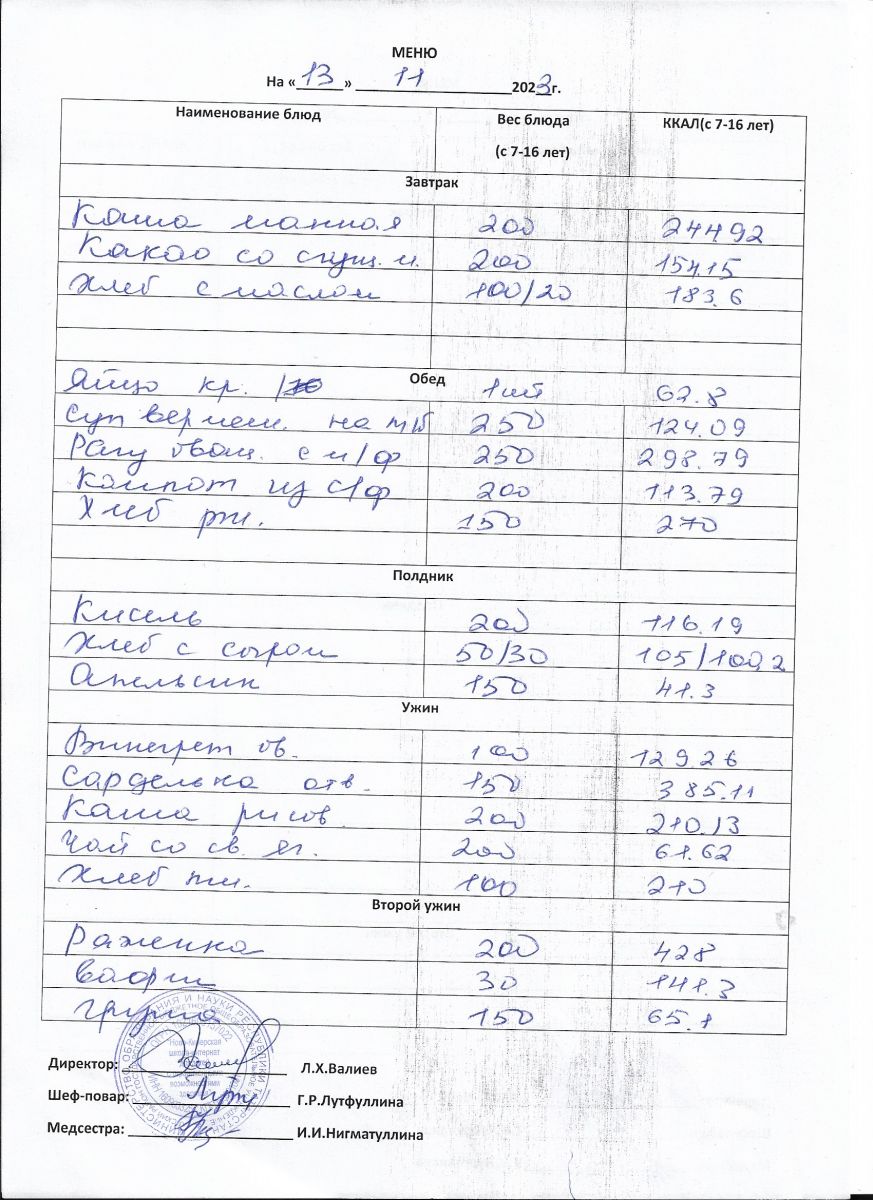 МЕНЮ
На « 13 » 11 2023г.
Наименование блюд Вес блюда (с 7-16 лет) ККАЛ(с 7-16 лет)
Завтрак
Каша манная 200 244.92
Какао со сгущ. м. 200 154.15
Хлеб с маслом 100/20 183.6
Обед
Яйцо кр. 1шт 62.8
Суп вермеш. на м/б 250 124.09
Рагу овощ. с м/ф 250 298.79
Компот из с/ф 200 113.79
Хлеб рж. 150 270
Полдник
Кисель 200 116.19
Хлеб с сыром 50/30 105/100,2
Апельсин 150 41.3
Ужин
Винегрет ов. 100 129.26
Сарделька отв. 150 385.11
Каша рисов. 200 210.13
Чай со св. яг. 200 61.62
Хлеб пш. 100 210
Второй ужин
Раженка 200 428
Вафли 30 141.3
Груша 150 65.1
Директор: Л.Х.Валиев
Шеф-повар: Г.Р.Лутфуллина
Медсестра: И.И.Нигматуллина